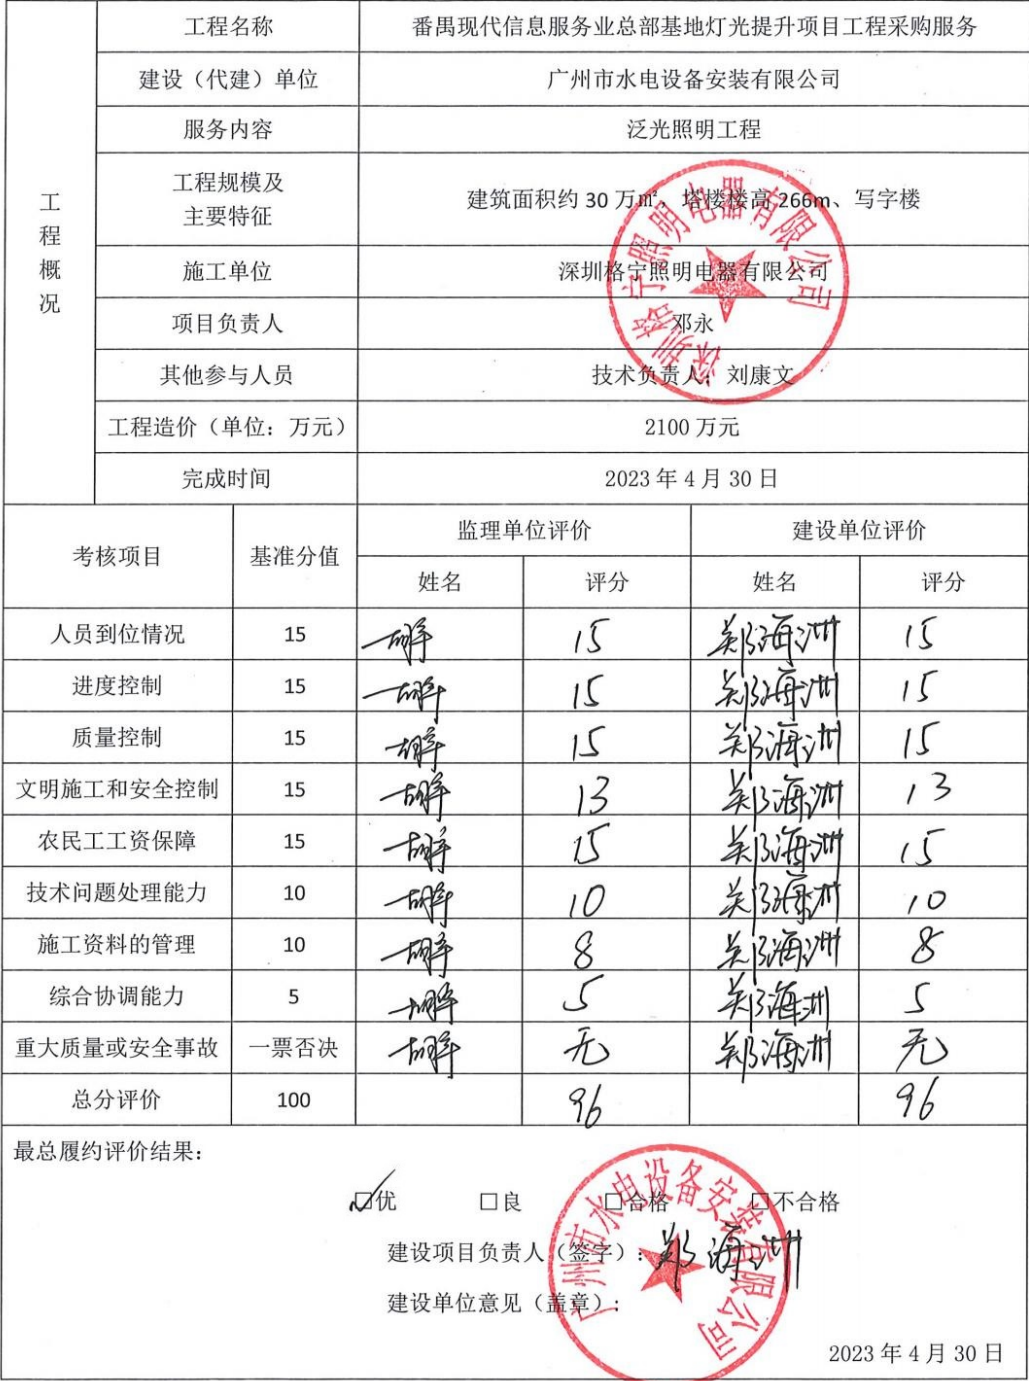 工程概况
工程名称 番禺现代信息服务业总部基地灯光提升项目工程采购服务
建设（代建）单位 广州市水电设备安装有限公司
服务内容 泛光照明工程
工程规模及
主要特征 建筑面积约 30 万㎡、塔楼楼高 266m、写字楼
施工单位 深圳格宁照明电器有限公司
项目负责人 邓永
其他参与人员 技术负责人：刘康文
工程造价（单位：万元） 2100 万元
完成时间 2023 年 4 月 30 日
深圳格宁照明电器有限公司
考核项目 基准分值 监理单位评价 建设单位评价
姓名 评分 姓名 评分
人员到位情况 15 15 郑海洲 15
进度控制 15 15 郑海洲 15
质量控制 15 15 郑海洲 15
文明施工和安全控制 15 13 郑海洲 13
农民工工资保障 15 15 郑海洲 15
技术问题处理能力 10 10 郑海洲 10
施工资料的管理 10 8 郑海洲 8
综合协调能力 5 5 郑海洲 5
重大质量或安全事故 一票否决 无 郑海洲 无
总分评价 100 96 96
最总履约评价结果：
☑优 □良 □合格 □不合格
建设项目负责人（签字）：郑海洲
建设单位意见（盖章）：
广州市水电设备安装有限公司
2023 年 4 月 30 日